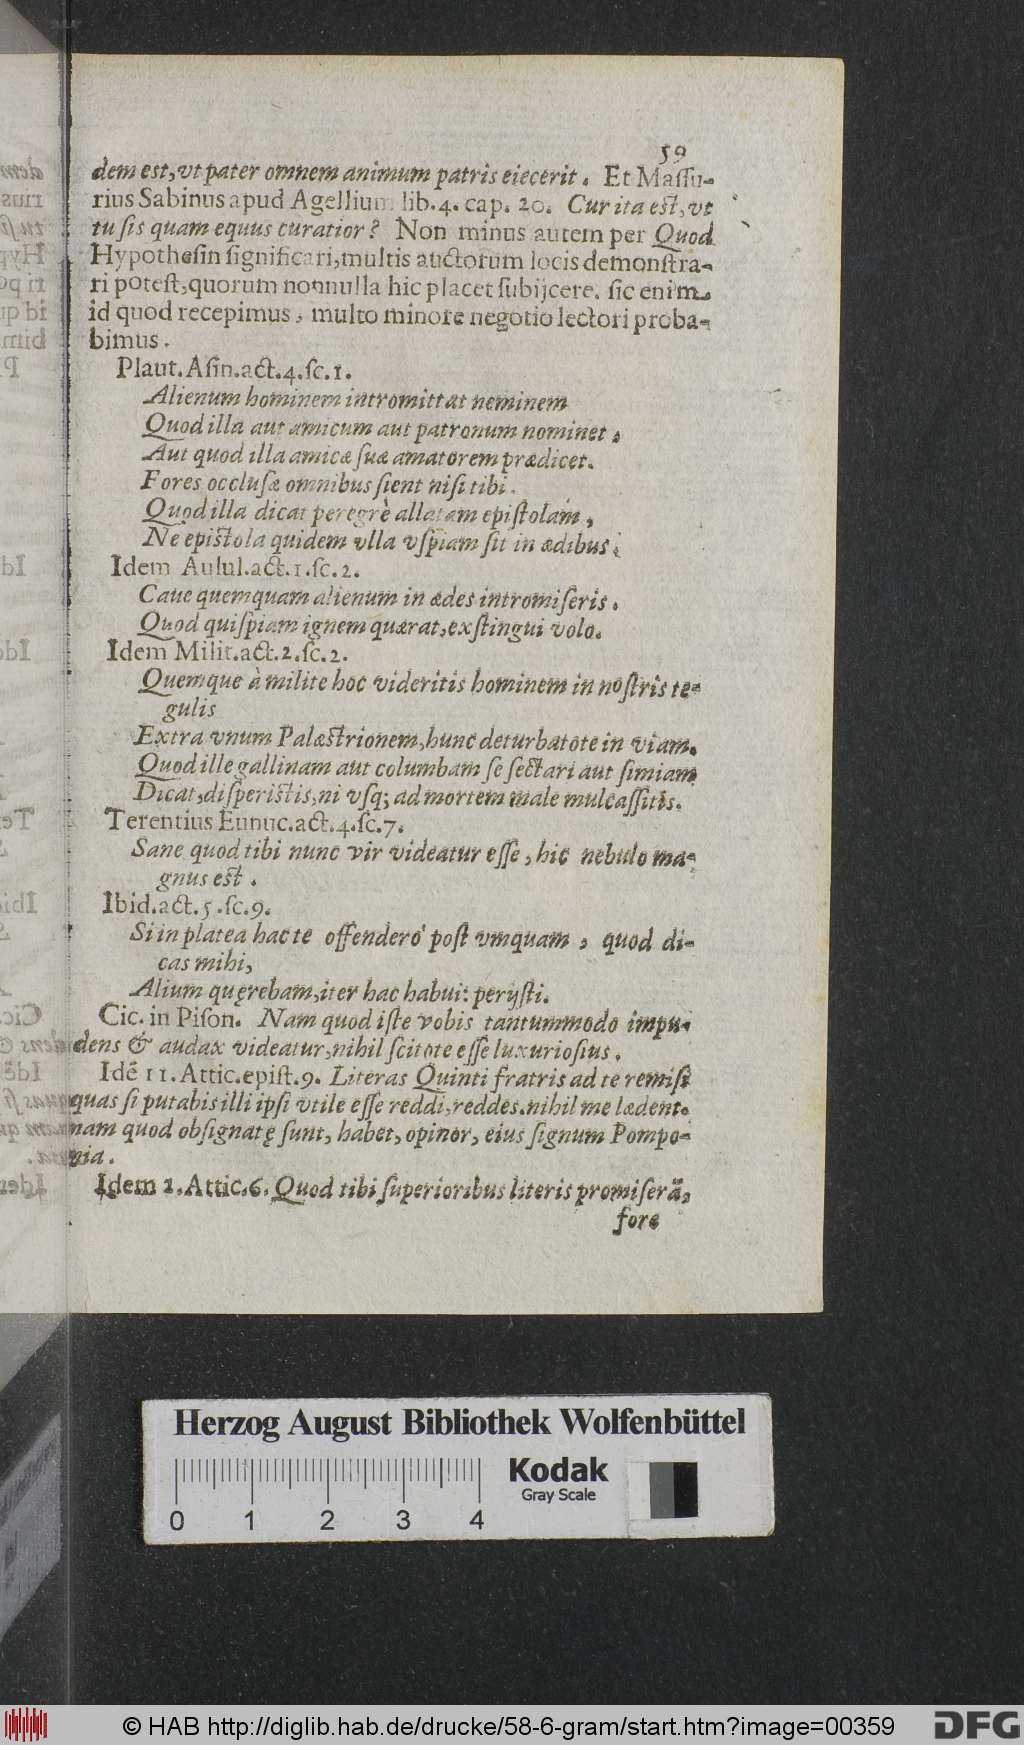 59
dem est, vt pater omnem animum patris eiecerit. Et Massu-
rius Sabinus apud Agellium lib. 4. cap. 20. Cur ita est, vt
tu sis quam equus curatior? Non minus autem per Quod
Hypothesin significari, multis auctorum locis demonstra-
ri potest, quorum nonnulla hic placet subijcere. sic enim
id quod recepimus, multo minore negotio lectori proba-
bimus.
Plaut. Asin. act. 4. sc. 1.
Alienum hominem intromittat neminem
Quod illa aut amicum aut patronum nominet,
Aut quod illa amicæ suæ amatorem prædicet.
Fores occlusæ omnibus sient nisi tibi.
Quod illa dicat peregrè allatam epistolam,
Ne epistola quidem vlla vspiam sit in ædibus.
Idem Aulul. act. 1. sc. 2.
Caue quemquam alienum in ædes intromiseris.
Quod quispiam ignem quærat, exstingui volo.
Idem Milit. act. 2. sc. 2.
Quemque à milite hoc videritis hominem in nostris te-
gulis
Extra vnum Palæstrionem, hunc deturbatote in viam.
Quod ille gallinam aut columbam se sectari aut simiam
Dicat, disperistis, ni vsq; ad mortem male mulcassitis.
Terentius Eunuc. act. 4. sc. 7.
Sane quod tibi nunc vir videatur esse, hic nebulo ma-
gnus est.
Ibid. act. 5. sc. 9.
Si in platea hac te offendero post vmquam, quod di-
cas mihi,
Alium quęrebam, iter hac habui: perijsti.
Cic. in Pison. Nam quod iste vobis tantummodo impu-
dens & audax videatur, nihil scitote esse luxuriosius.
Idē 11. Attic. epist. 9. Literas Quinti fratris ad te remisi
quas si putabis illi ipsi vtile esse reddi, reddes. nihil me lædent.
nam quod obsignatę sunt, habet, opinor, eius signum Pompo-
nia.
Idem 2. Attic. 6. Quod tibi superioribus literis promiserā,
fore
Herzog August Bibliothek Wolfenbüttel
Kodak
Gray Scale
0 1 2 3 4
© HAB http://diglib.hab.de/drucke/58-6-gram/start.htm?image=00359
DFG